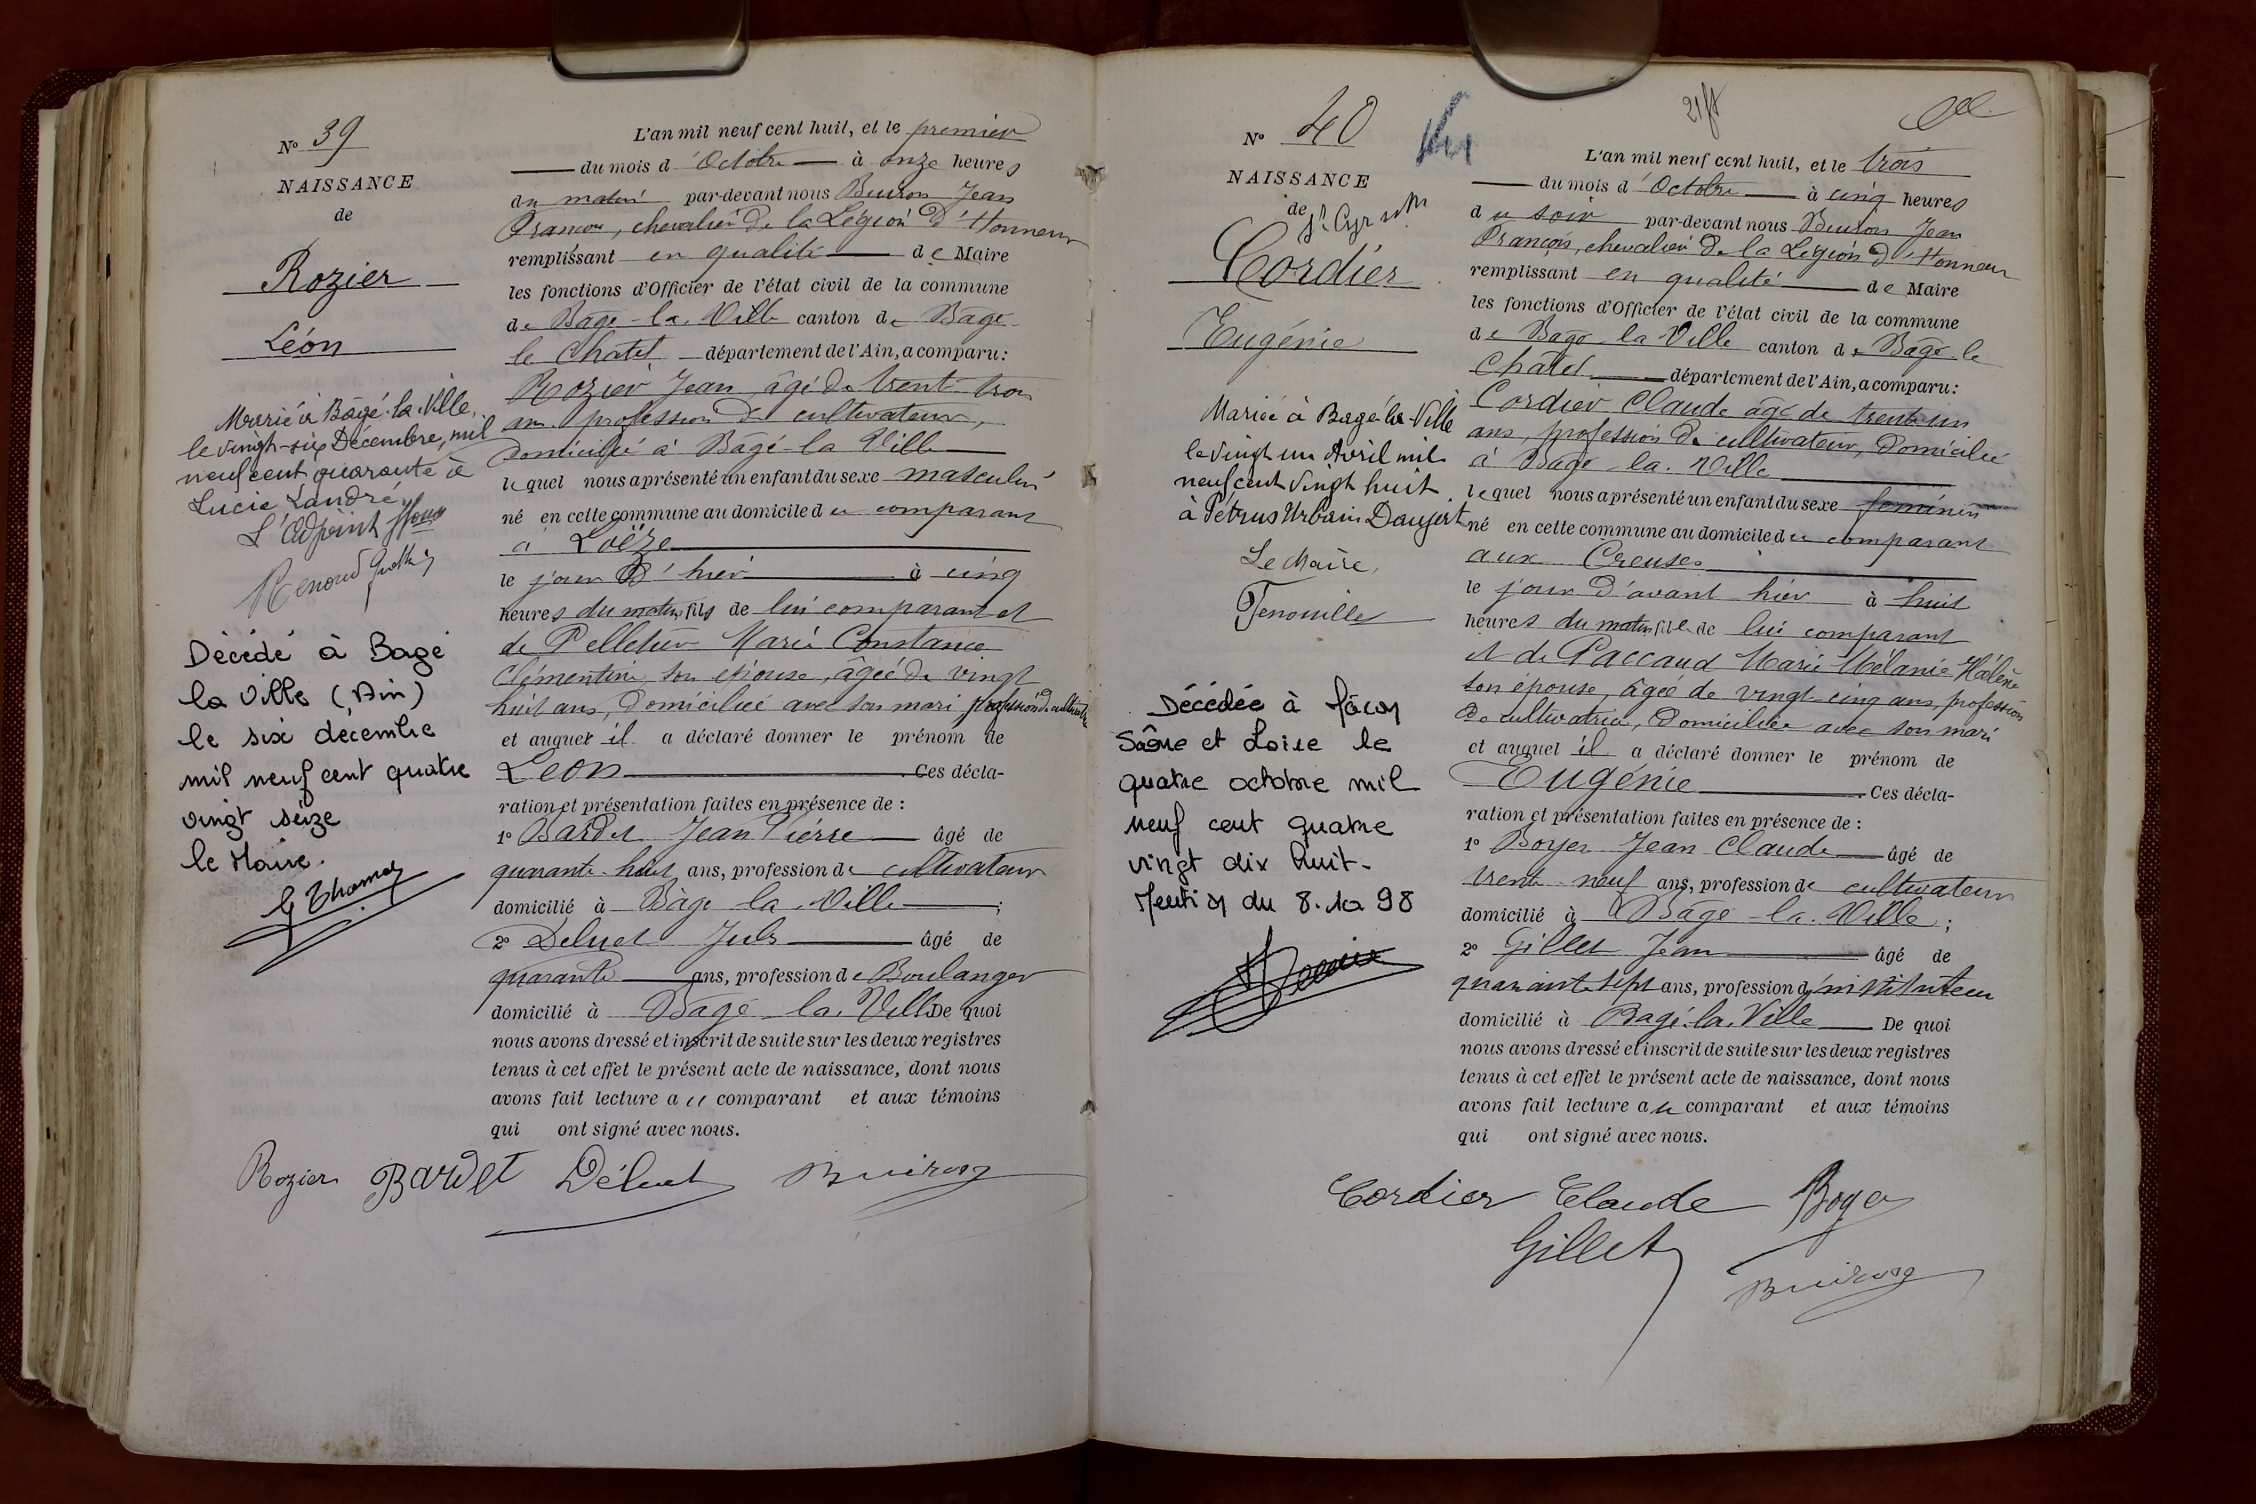 N° 39
NAISSANCE
de
Rozier
Léon
Marié à Bâgé-la-Ville,
le vingt-six Décembre, mil
neuf cent quarante à
Lucie Landré
L'Adjoint
Décédé à Bagé
la Ville (Ain)
le six décembre
mil neuf cent quatre
vingt seize
le Maire.
G Thomas
L'an mil neuf cent huit, et le premier
du mois d'Octobre à onze heures
du matin par-devant nous Buiron Jean
François, chevalier de la Légion d'Honneur
remplissant en qualité de Maire
les fonctions d'Officier de l'état civil de la commune
de Bâgé-la-Ville canton de Bâgé
le Chatel département de l'Ain, a comparu:
Rozier Jean âgé de trente-trois
ans profession de cultivateur,
domicilié à Bâgé-la Ville
lequel nous a présenté un enfant du sexe masculin
né en cette commune au domicile du comparant
à Loëze
le jour d'hier à cinq
heures du matin fils de lui comparant et
de Pelletier Marie Constance
Clémentine, son épouse, âgée de vingt
huit ans, domiciliée avec son mari profession de cultivatrice
et auquel il a déclaré donner le prénom de
Léon . Ces décla-
ration et présentation faites en présence de :
1° Bardet Jean Pierre âgé de
quarante-huit ans, profession de cultivateur
domicilié à Bâgé la Ville ;
2° Deluet Jules âgé de
quarante ans, profession de Boulanger
domicilié à Bâgé-la-Ville De quoi
nous avons dressé et inscrit de suite sur les deux registres
tenus à cet effet le présent acte de naissance, dont nous
avons fait lecture au comparant et aux témoins
qui ont signé avec nous.
Rozier Bardet Déluet Buiron
N° 40
21 ft
NAISSANCE
de
St Cyr s/M
Cordier
Eugénie
Mariée à Bagé-la-Ville
le vingt un Avril mil
neuf cent vingt huit
à Pétrus Urbain Daujert
Le Maire,
Fenouillet
Décédée à Mâcon
Saône et Loire le
quatre octobre mil
neuf cent quatre
vingt dix huit.
Mention du 8.10 98
L'an mil neuf cent huit, et le trois
du mois d'Octobre à cinq heures
du soir par-devant nous Buiron Jean
François, chevalier de la Légion d'Honneur
remplissant en qualité de Maire
les fonctions d'Officier de l'état civil de la commune
de Bâgé-la Ville canton de Bâgé-le
Châtel département de l'Ain, a comparu:
Cordier Claude âgé de trente un
ans, profession de cultivateur, domicilié
à Bâgé-la-Ville
lequel nous a présenté un enfant du sexe féminin
né en cette commune au domicile du comparant
aux Creuses
le jour d'avant hier à huit
heures du matin fille de lui comparant
et de Paccaud Marie Mélanie Hélène
son épouse, âgée de vingt-cinq ans, profession
de cultivatrice, domiciliée avec son mari
et auquel il a déclaré donner le prénom de
Eugénie . Ces décla-
ration et présentation faites en présence de :
1° Boyer Jean Claude âgé de
trente-neuf ans, profession de cultivateur
domicilié à Bâgé-la-Ville ;
2° Gillet Jean âgé de
quarante sept ans, profession d'instituteur
domicilié à Bagé-la-Ville De quoi
nous avons dressé et inscrit de suite sur les deux registres
tenus à cet effet le présent acte de naissance, dont nous
avons fait lecture au comparant et aux témoins
qui ont signé avec nous.
Cordier Claude Boyer
Gillet
Buiron